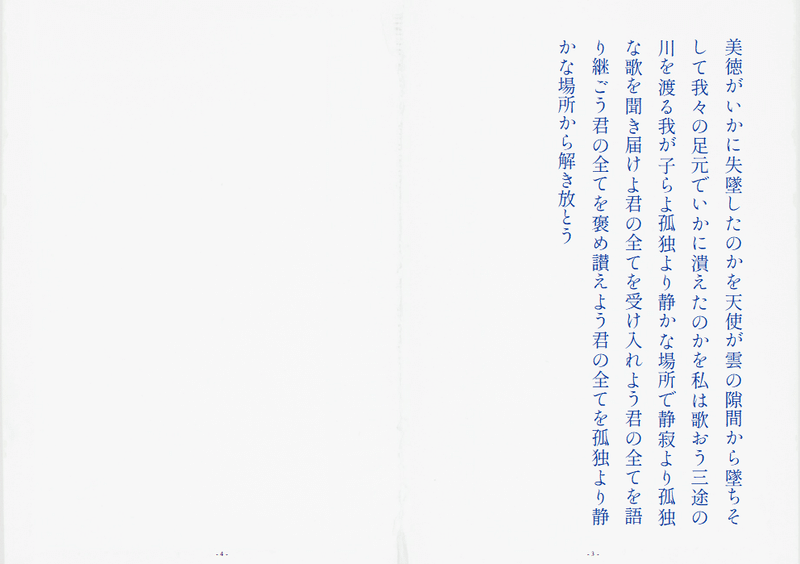 美徳がいかに失墜したのかを天使が雲の隙間から墜ちそ
して我々の足元でいかに潰えたのかを私は歌おう三途の
川を渡る我が子らよ孤独より静かな場所で静寂より孤独
な歌を聞き届けよ君の全てを受け入れよう君の全てを語
り継ごう君の全てを褒め讃えよう君の全てを孤独より静
かな場所から解き放とう
- 3 -
- 4 -